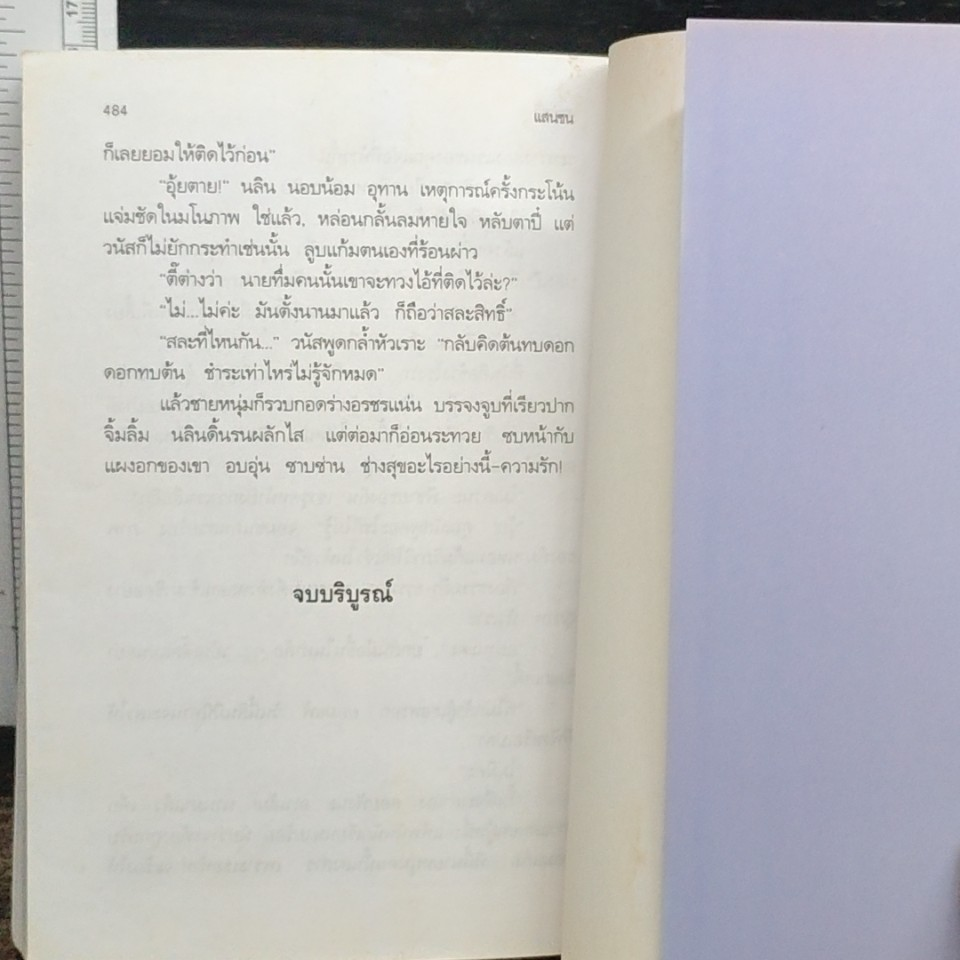 484
แสนซน
ก็เลยยอมให้ติดไว้ก่อน"
"อุ้ยตาย!" นลิน นอบน้อม อุทาน เหตุการณ์ครั้งกระโน้น
แจ่มชัดในมโนภาพ ใช่แล้ว, หล่อนกลั้นลมหายใจ หลับตาปี๋ แต่
วนัสก็ไม่ยักกระทำเช่นนั้น ลูบแก้มตนเองที่ร้อนผ่าว
"ตี๊ต่างว่า นายที่มคนนั้นเขาจะทวงไอ้ที่ติดไว้ล่ะ?"
"ไม่...ไม่ค่ะ มันตั้งนานมาแล้ว ก็ถือว่าสละสิทธิ์"
"สละที่ไหนกัน..." วนัสพูดกล้ำหัวเราะ "กลับคิดต้นทบดอก
ดอกทบต้น ชำระเท่าไหร่ไม่รู้จักหมด"
แล้วชายหนุ่มก็รวบกอดร่างอรชรแน่น บรรจงจูบที่เรียวปาก
จิ้มลิ้ม นลินดิ้นรนผลักไส แต่ต่อมาก็อ่อนระทวย ซบหน้ากับ
แผงอกของเขา อบอุ่น ซาบซ่าน ช่างสุขอะไรอย่างนี้-ความรัก!
จบบริบูรณ์
17